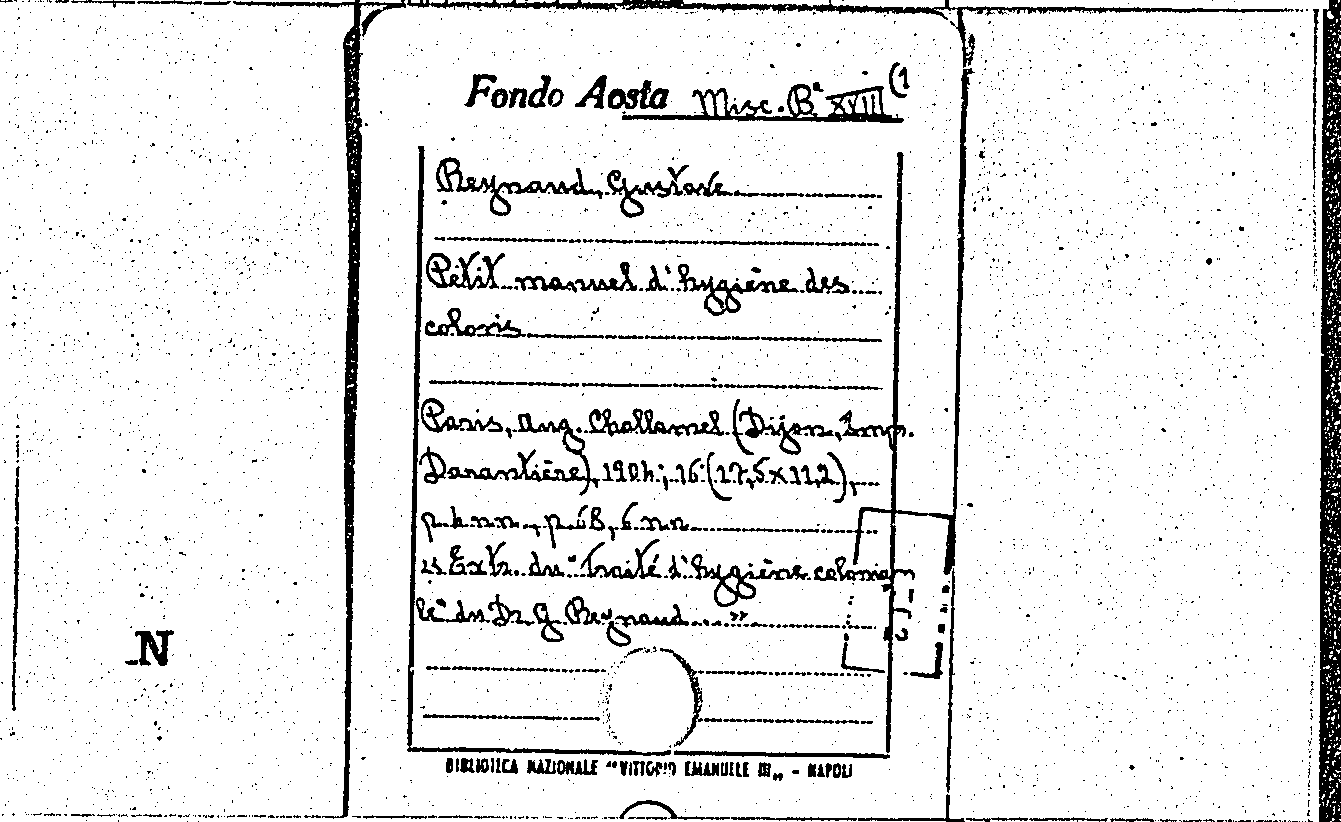 Fondo Aosta Misc. Bª XVIII (1
Reynaud, Gustave
Petit manuel d'hygiène des
colons
Paris, Aug. Challamel (Dijon, Imp.
Darantière), 1904; 16° (17,5x11,2),
p. 4 nn., p. 68, 6 nn
« Extr. du "Traité d'hygiène colonia
le" du Dr G. Reynaud ... »
N
BIBLIOTECA NAZIONALE "VITTORIO EMANUELE III„ - NAPOLI